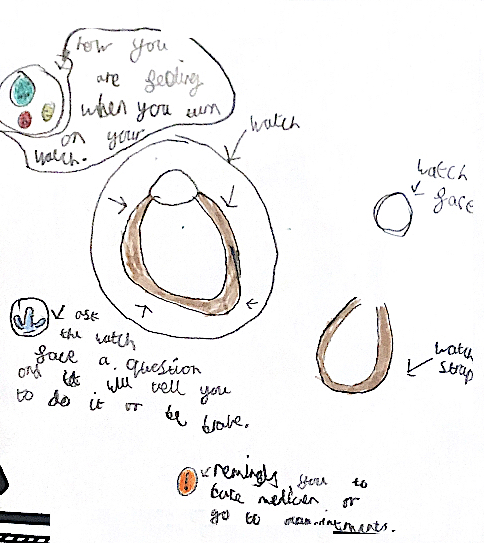 how you
are feeling
when you turn
on your
watch.
watch
watch
face
ask
the watch
face a question
and it will tell you
to do it or be brave.
watch
strap
remingds you to
take medicen or
go to